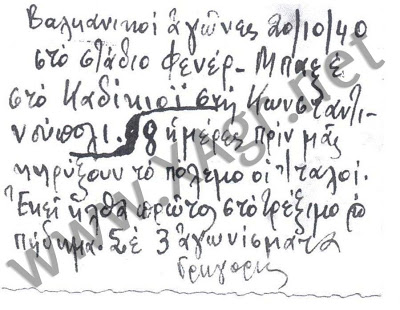 Βαλκανικοί ἀγῶνες 20/10/40
στό στάδιο Φενέρ-Μπαξέ
στό Καδίκιοϊ στή Κωνσταντι-
νούπολι. 8 ἡμέρες πρίν μᾶς
κηρύξουν τό πόλεμο οἱ Ἰταλοί.
Ἐκεῖ ἦλθα πρῶτος στό τρέξιμο
πήδημα. Σέ 3 ἀγωνίσματα
Γρηγόρης
www.YAgr.net